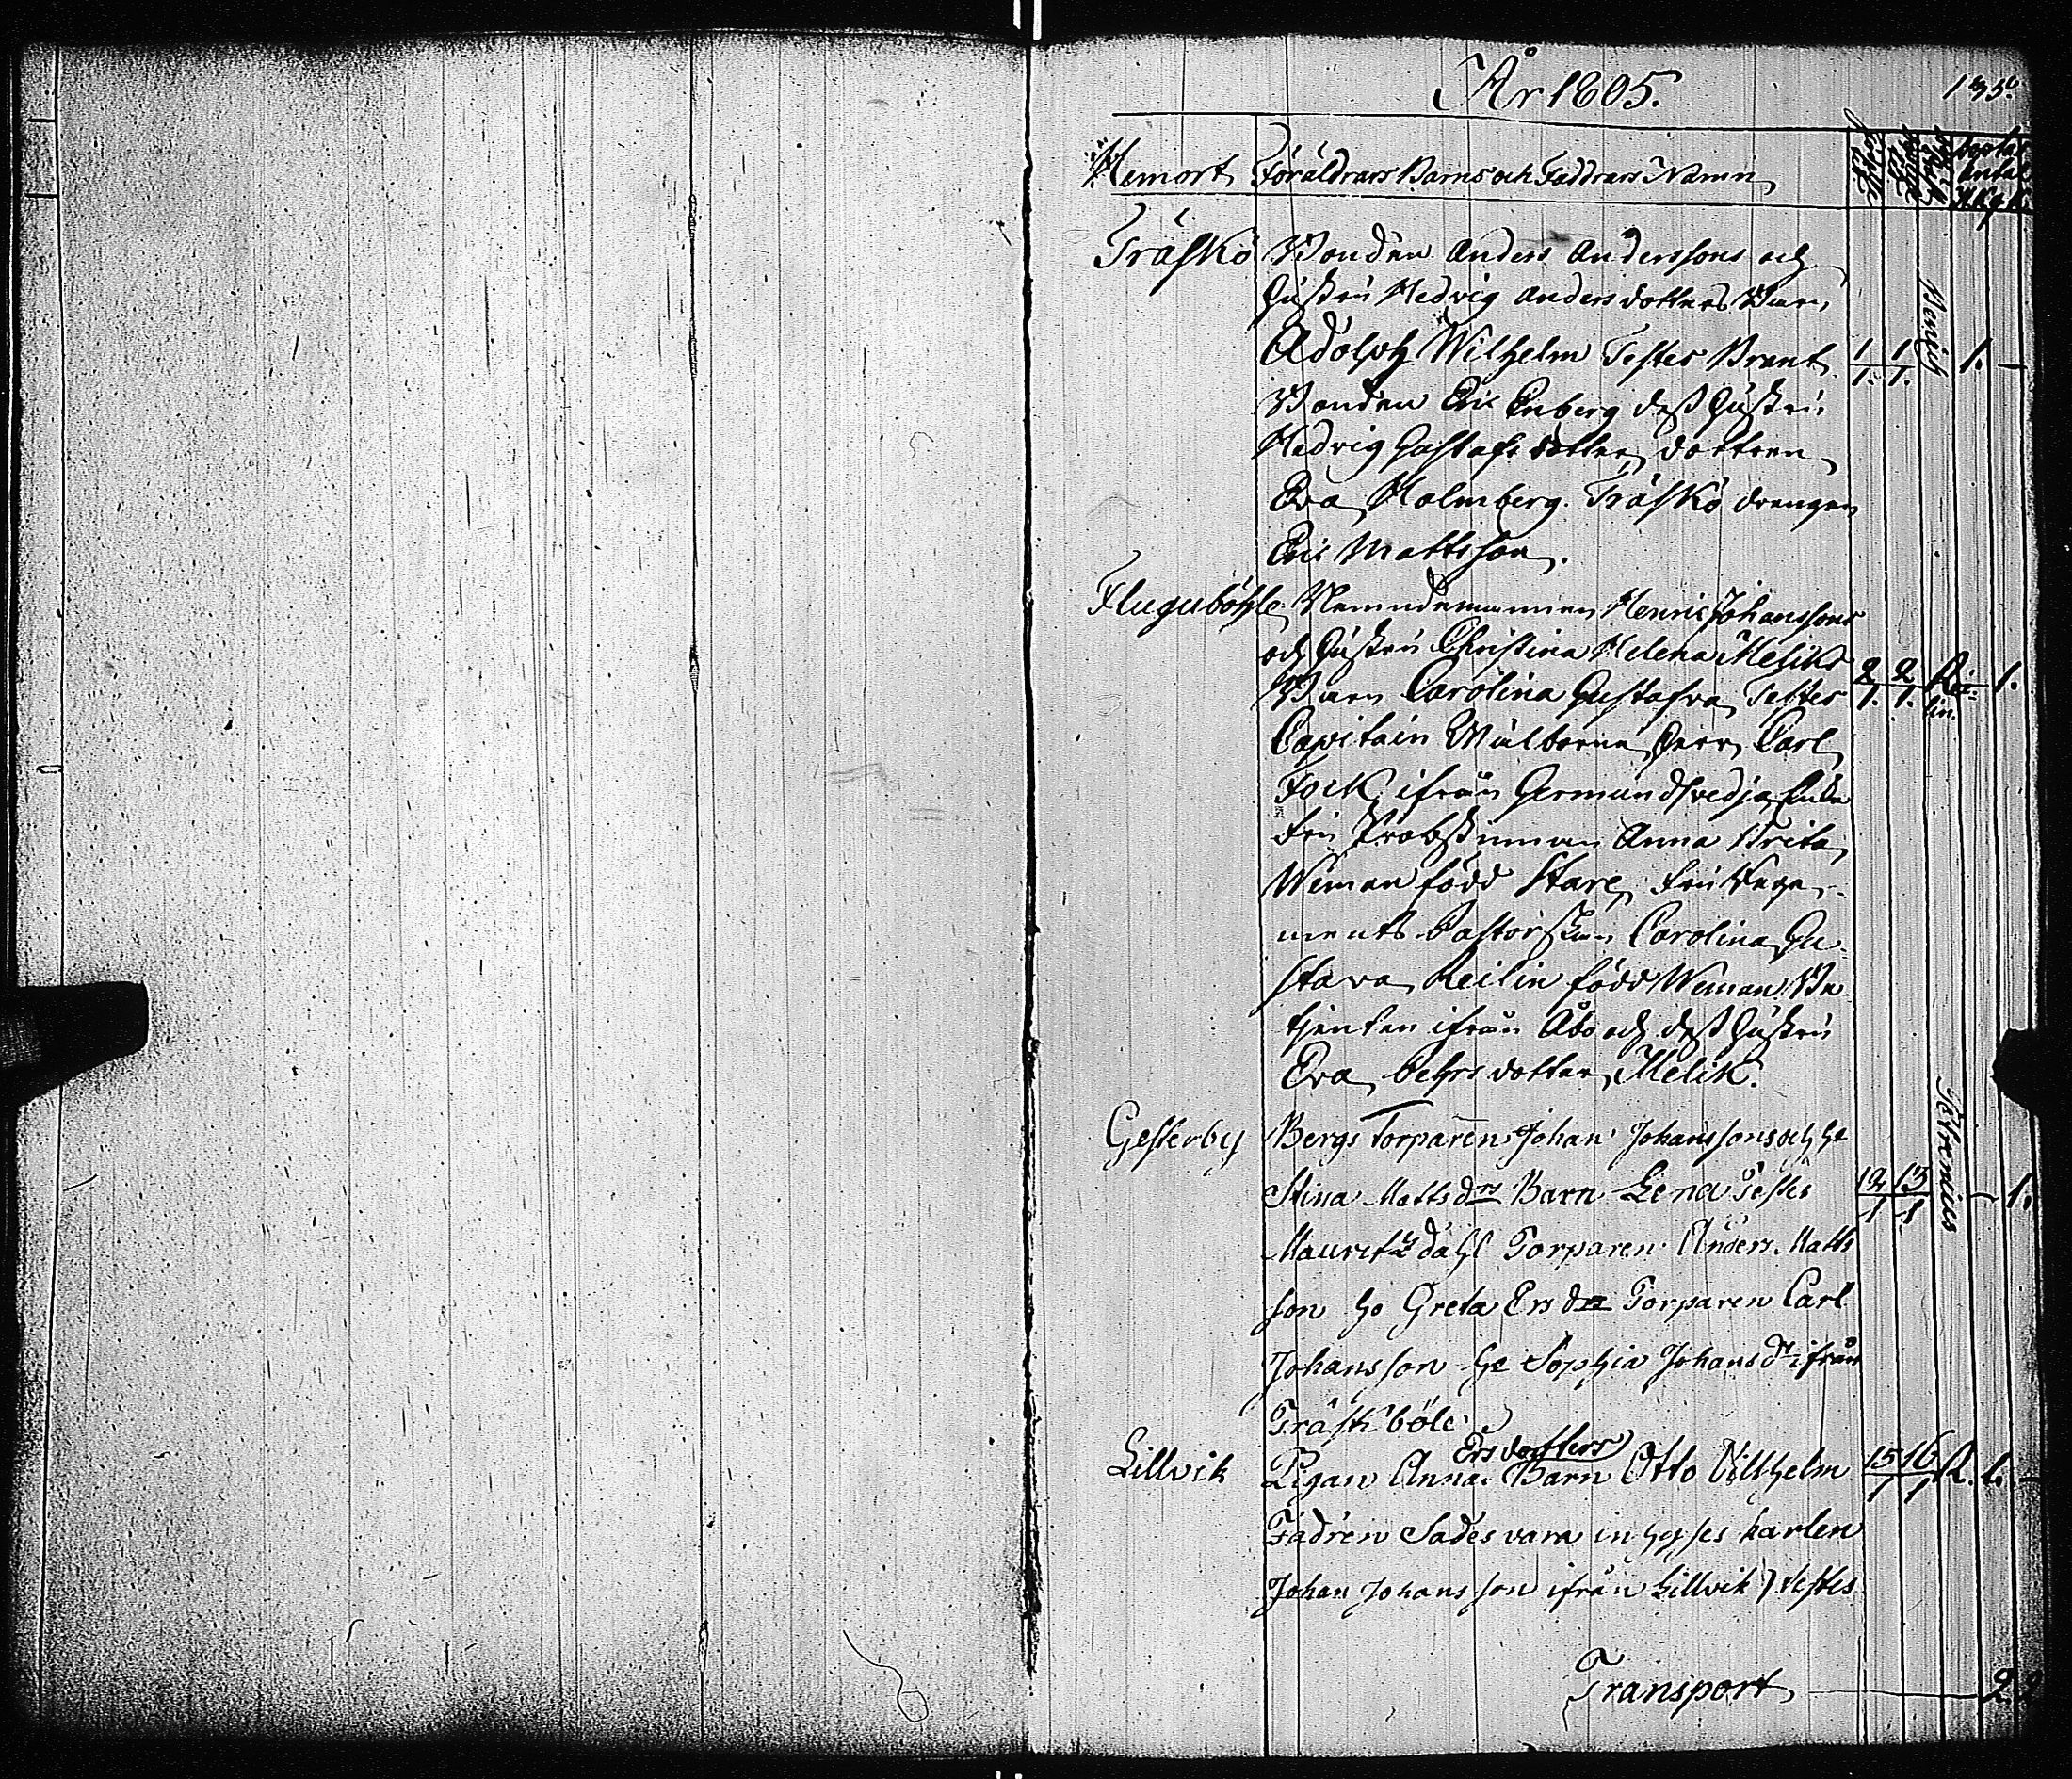 År 1805.
135.
Hemort Föräldrars Barns och Faddrars Namn
Träskö Bonden Anders Anderssons och
Hustrü Hedvig Andersdotters Barn,
Adolph Wilhelm Testes Brant 1/1. 1/1. 1. –
Bonden Eric Enberg dess Hustrü
Hedvig Gustafs dotter, dottren
Eva Holmberg. Träskö drengen
Eric Mattsson.
Flugubőhle Nämndemannen Henric Johanssons
och Hustrü Christina Helena Melicks
Barn Carolina Gustafva Testes 2/1. 2/1. Rei-lin. – 1.
Capitain Wälborne Herr Carl
Fock ifrån Germundsvedja Enke
Fru Probstinnan Anna Brita
Weman född Stare, Fru Rege-
ments Pastorskan Carolina Gu-
stava Reilin född Weman, Be-
tjenten ifrån Åbo och dess Hustrü
Eva Pehrsdotter Melik.
Gesterby Bergs Torparen Johan Johanssons och he
Stina Matts drs Barn Lena Testes 12/1 13/1 – 1.
Mauritz Dahl Torparen Anders Matts
son ho Greta Ers dr Torparen Carl
Johansson he Sophia Johans dr ifrån
Träskböle
Ersdotters
Lillvik Pigan Anna Barn Otto Vilhelm 15/1 16/1 R. 1. –
Fadren Sades vara inhyses karlen
Johan Johansson ifrån Lillvik) testes
Transport – 2. 2